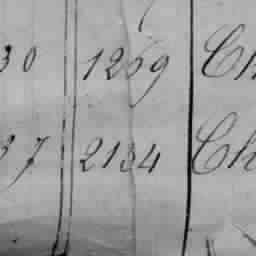 30 1269 Ch
37 2134 Ch